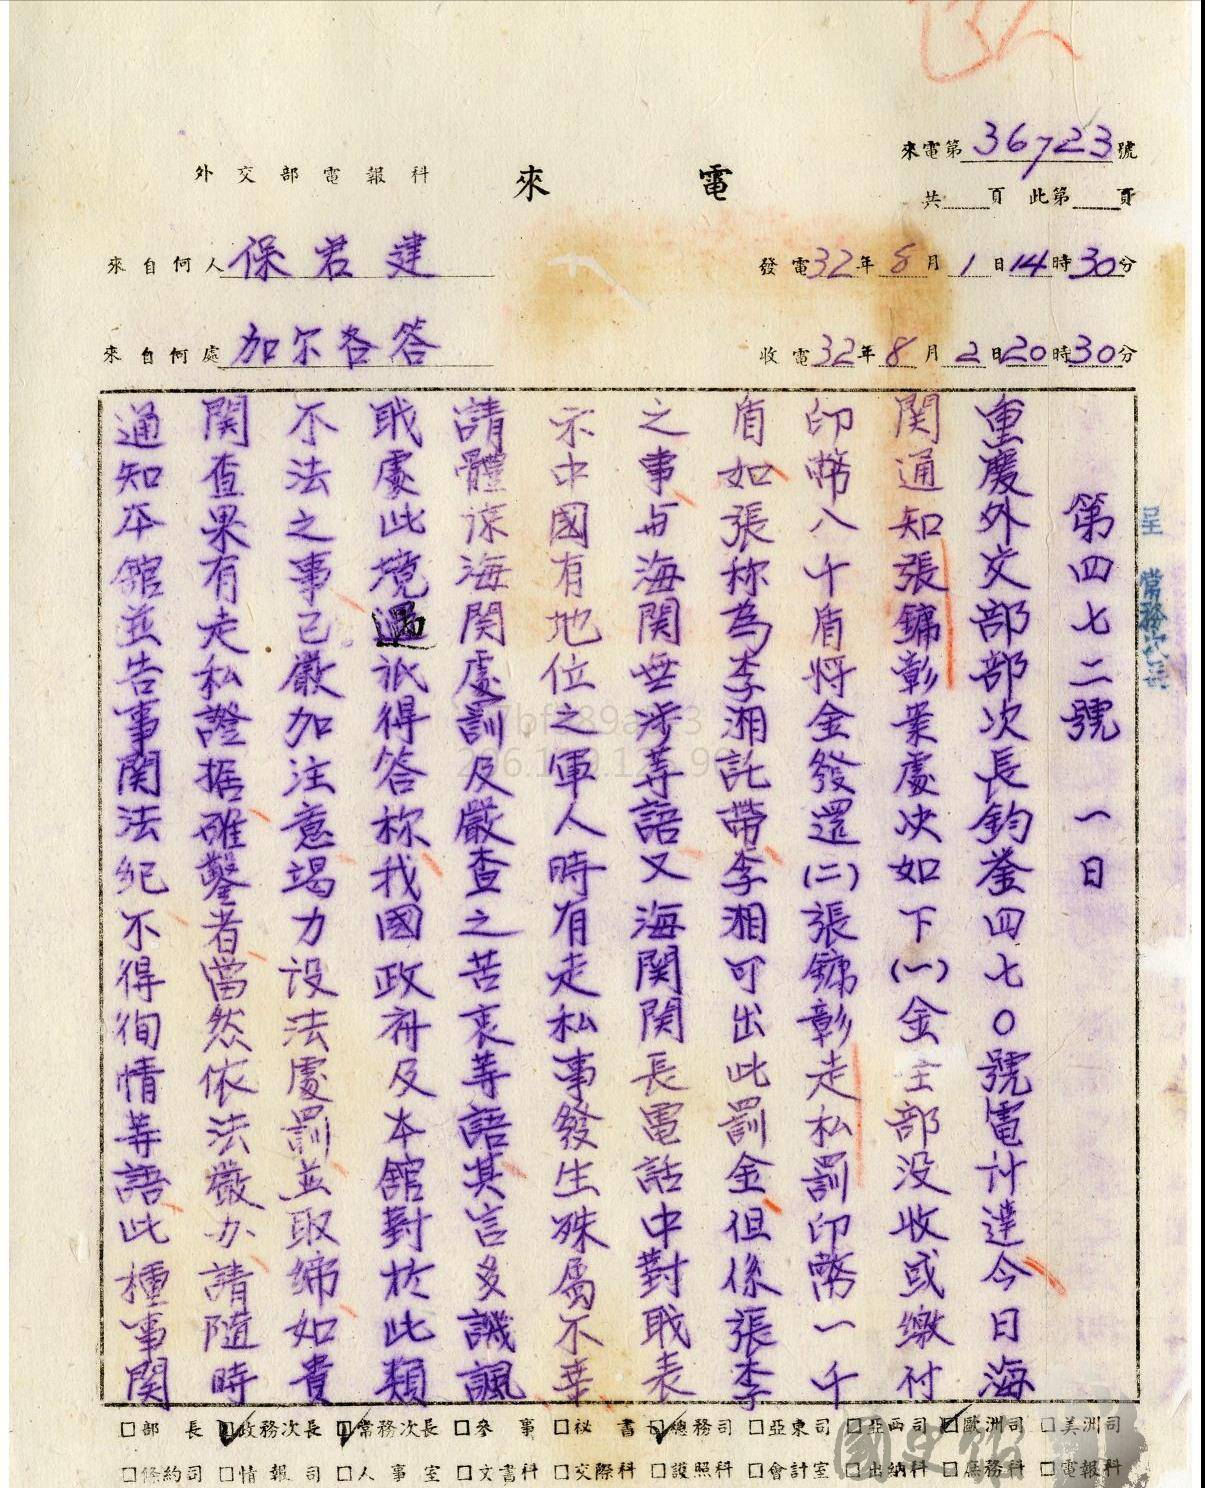 來電第36723號
外交部電報科 來電
共 頁 此第 頁
來自何人 保君建
發電32年8月1日14時30分
來自何處 加尔各答
收電32年8月2日20時30分
呈 常務次長
第四七二號 一日
重慶外交部部次長鈞鉴四七〇號電計達今日海
関通知張鏞彰業處决如下(一)金主部没收或繳付
印幣八千盾将金發還(二)張鏞彰走私罰印幣一千
盾如張称為李湘託帶李湘可出此罰金但係張李
之事与海関無涉等語又海関関長電話中對職表
示中國有地位之軍人時有走私事發生殊屬不幸
請體諒海関處訓及嚴查之苦衷等語其言多譏諷
職處此境遇祇得答称我國政府及本館對於此類
不法之事已嚴加注意竭力设法處罰並取缔如貴
関查果有走私證据確鑿者當然依法嚴办請隨時
通知本館並告事関法纪不得徇情等語此種事関
□部長 □政務次長 □常務次長 □參事 □祕書 □總務司 □亞東司 □亞西司 □歐洲司 □美洲司
□條約司 □情報司 □人事室 □文書科 □交際科 □護照科 □會計室 □出納科 □庶務科 □電報科
國史館